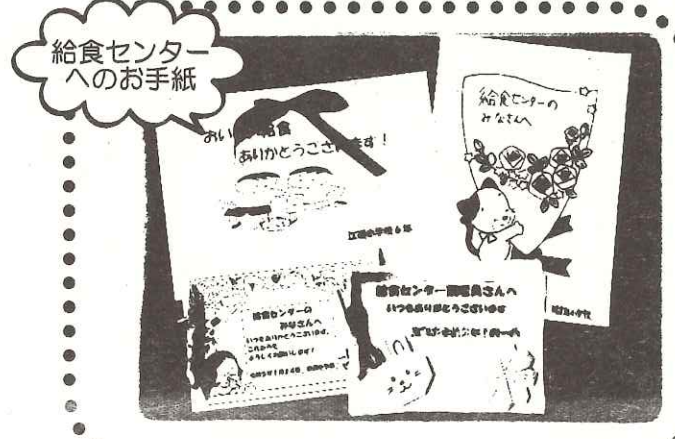 給食センター
へのお手紙
おいしい給食
ありがとうございます！
小学校6年
給食センターの
みなさんへ
給食センターの
みなさんへ
いつもありがとうございます。
これからも
よろしくお願いします！
給食センター調理員さんへ
いつもありがとうございます